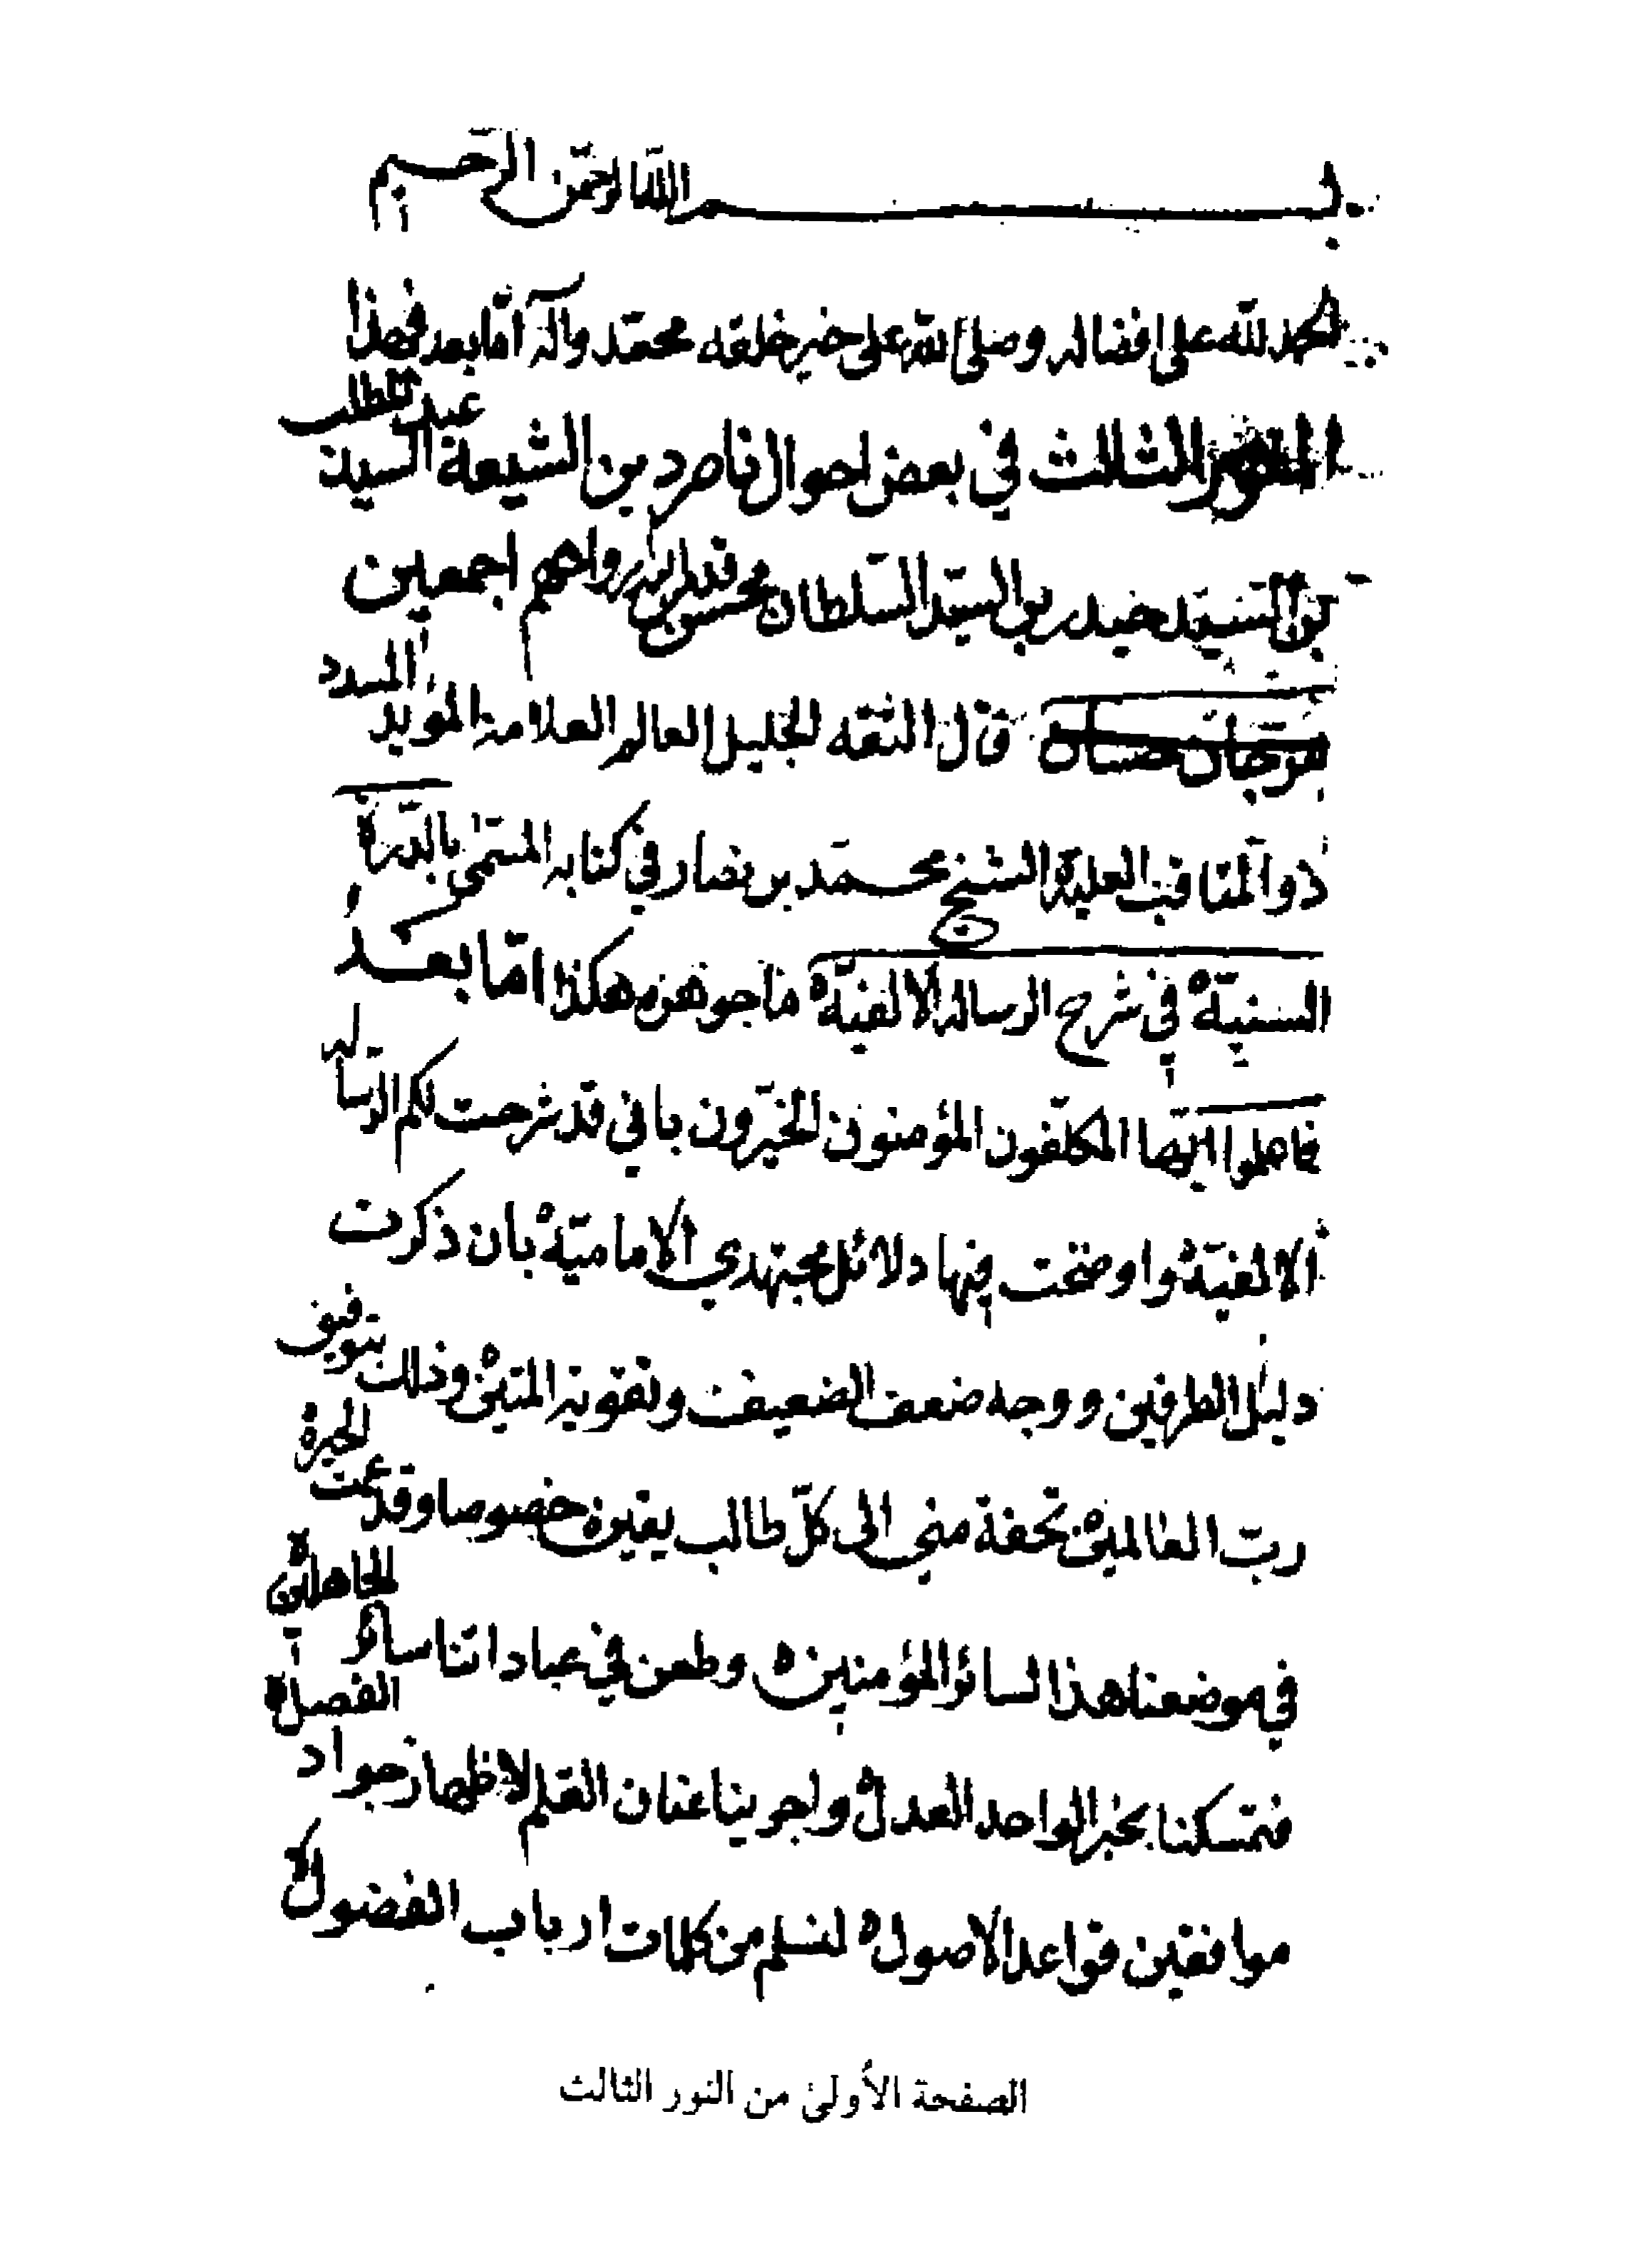 بسم الله الرحمن الرحيم
الحمد لله على افضاله وصلى الله على خير خلقه محمد وآله أما بعد فهذا
النور الثالث في بعض احوال ناصر دين الشيعة السيد عبد المطلب
بن السيد حيدر بن السيد السلطان محسن قدس الله ارواحهم اجمعين
قال الثقه الجليل العالم العلامة المؤيد المسدد
ذو المناقب العلية الشيخ محمد بن نصار في كتابه المسمى بالدرة
السنية في شرح الرسالة الالفية ما جوهره هكذا امّا بعد
فاعلموا ايها المكلفون المؤمنون الخيّرون باني قد شرحت لكم الرسالة
الالفية واوضحت فيها دلائل مجتهدي الامامية بان ذكرت
دليل الطرفين ووجه ضعف الضعيف وتقوية المتين وذلك بتوفيق
ربّ العالمين تحفة مني الى كلّ طالب يقين خصوصا وقد عمت الحيرة
في موضعنا هذا لسائر المؤمنين وطعن في عباداتنا سائر الجاهلين
فتمسكنا بخبر الواحد العدل واجرينا عنان القلم لاظهار جواد الفصل
موافقين قواعد الاصول لنسلم من كلمات ارباب الفضول
الصفحة الأولىٰ من النور الثالث